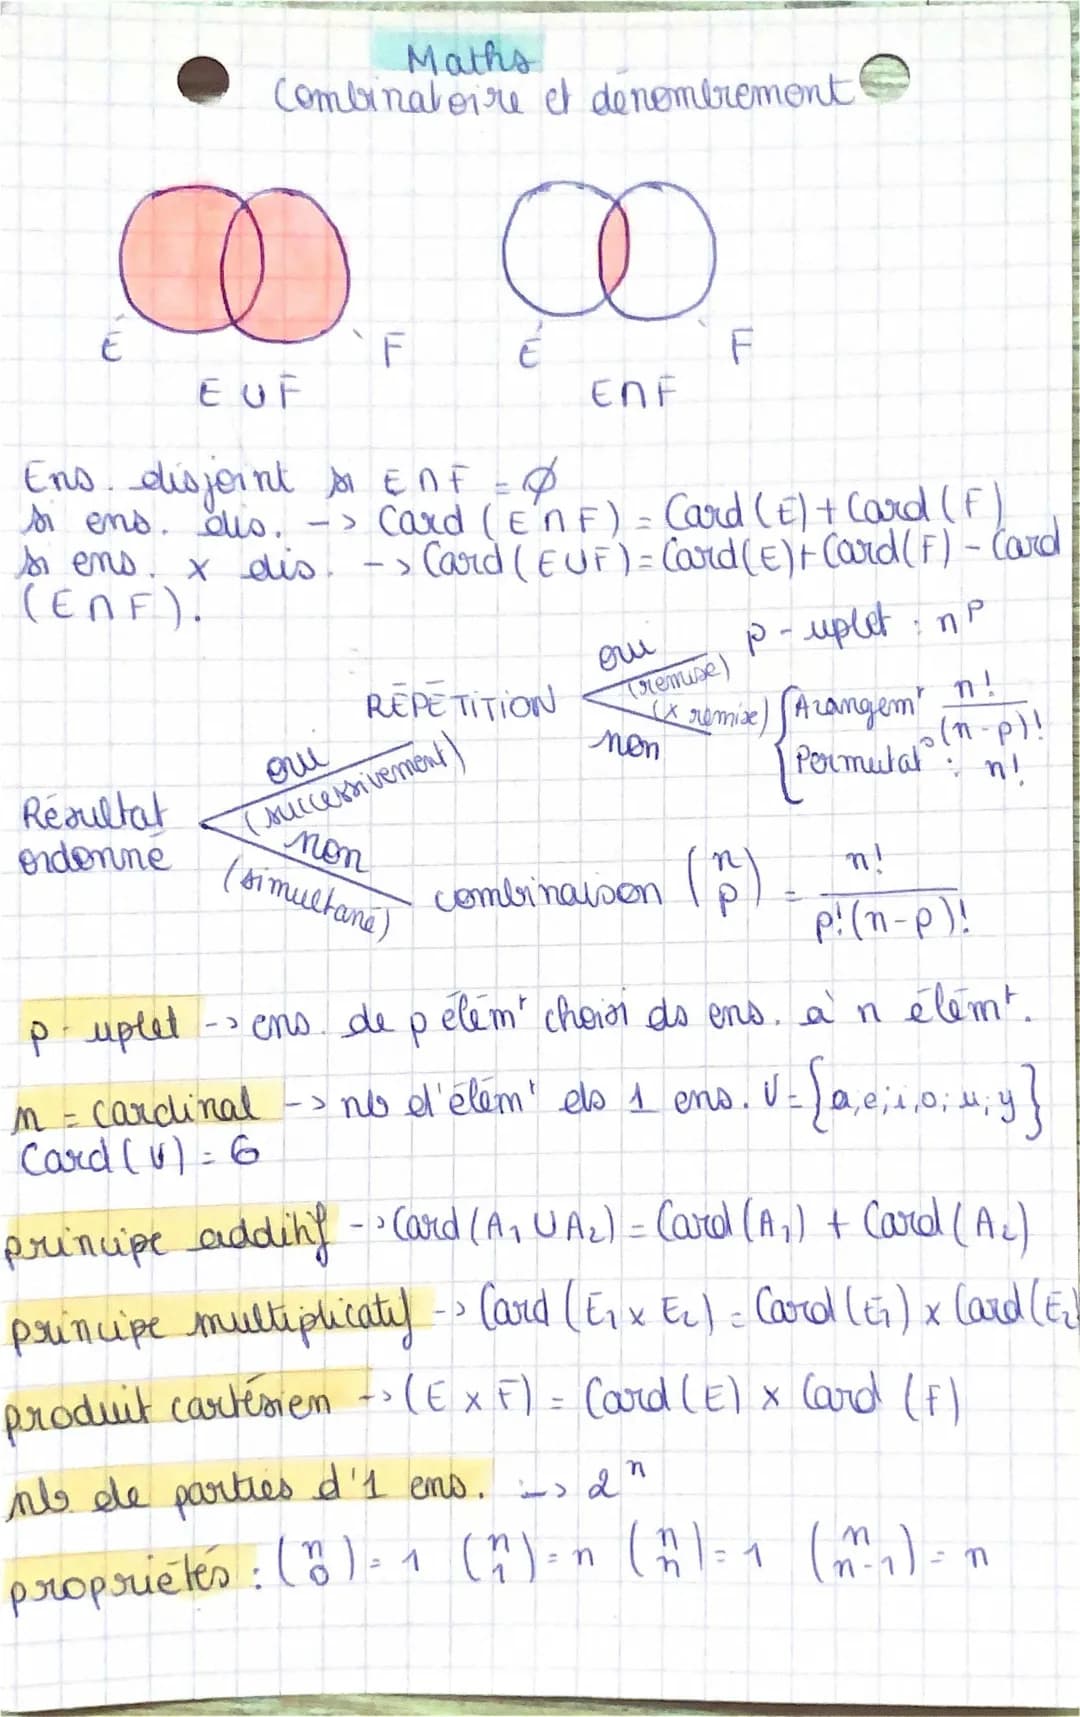 Maths
Combinatoire et dénombrement
E F E F
E U F E ∩ F
Ens. disjoint si E ∩ F = Ø
si ens. dis. -> Card (E ∩ F) = Card (E) + Card (F)
si ens. x dis. -> Card (E U F) = Card(E) + Card(F) - Card
(E ∩ F).
oui p-uplet : n^p
(remise)
RÉPÉTITION
(x remise) { Arangem^t n!/(n-p)!
non
Permutat° : n!
oui
(successivement)
Résultat
ordonné
non
(simultané) combinaison (n p) = n!/p!(n-p)!
p-uplet -> ens. de p élém^t choisi ds ens. à n élém^t.
n = cardinal -> nb d'élém^t ds 1 ens. V = {a;e;i;o;u;y}
Card (V) = 6
principe additif -> Card (A₁ U A₂) = Card (A₁) + Card (A₂)
principe multiplicatif -> Card (E₁ x E₂) = Card (E₁) x Card (E₂)
produit cartésien -> (E x F) = Card (E) x Card (F)
nb de parties d'1 ens. -> 2^n
propriétés : (n 0) = 1 (n 1) = n (n n) = 1 (n n-1) = n